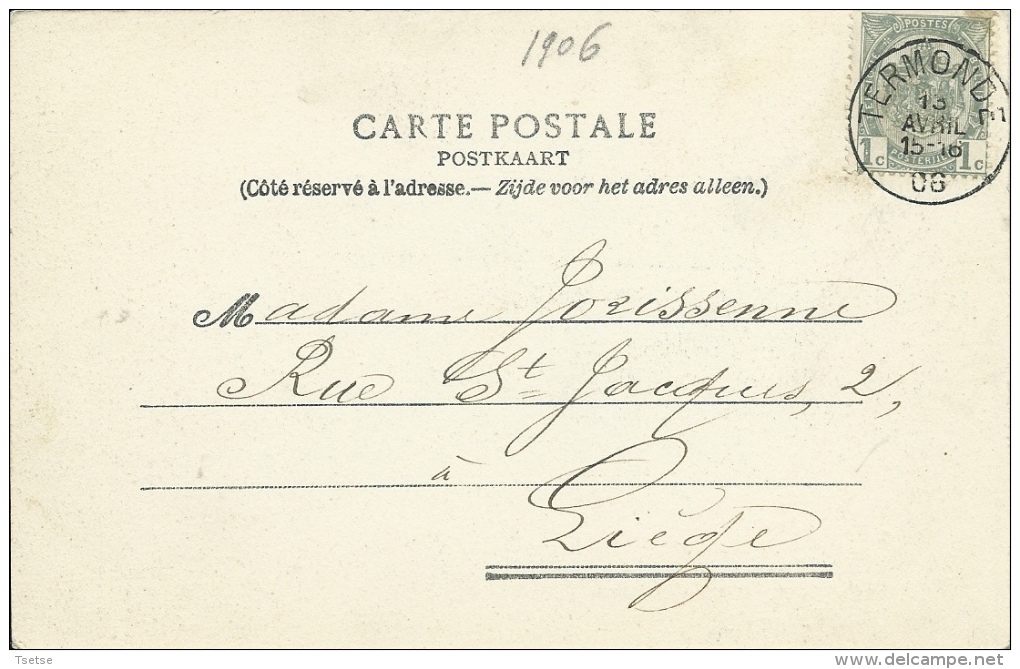 1906
POSTES
TERMONDE
13
AVRIL
15-16
06
1c POSTERIJEN 1c
CARTE POSTALE
POSTKAART
(Côté réservé à l'adresse.— Zijde voor het adres alleen.)
Madame Jorissenne
Rue St Jacques, 2,
à
Liège
Tsetse
www.delcampe.net